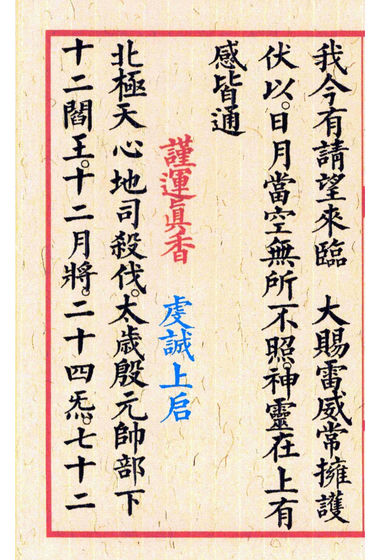 我今有請望來臨 大賜雷威常擁護
伏以。日月當空無所不照。神靈在上有
感皆通
謹運眞香 虔誠上启
北極天心地司殺伐。太歲殷元帥部下
十二閻王。十二月將。二十四炁。七十二